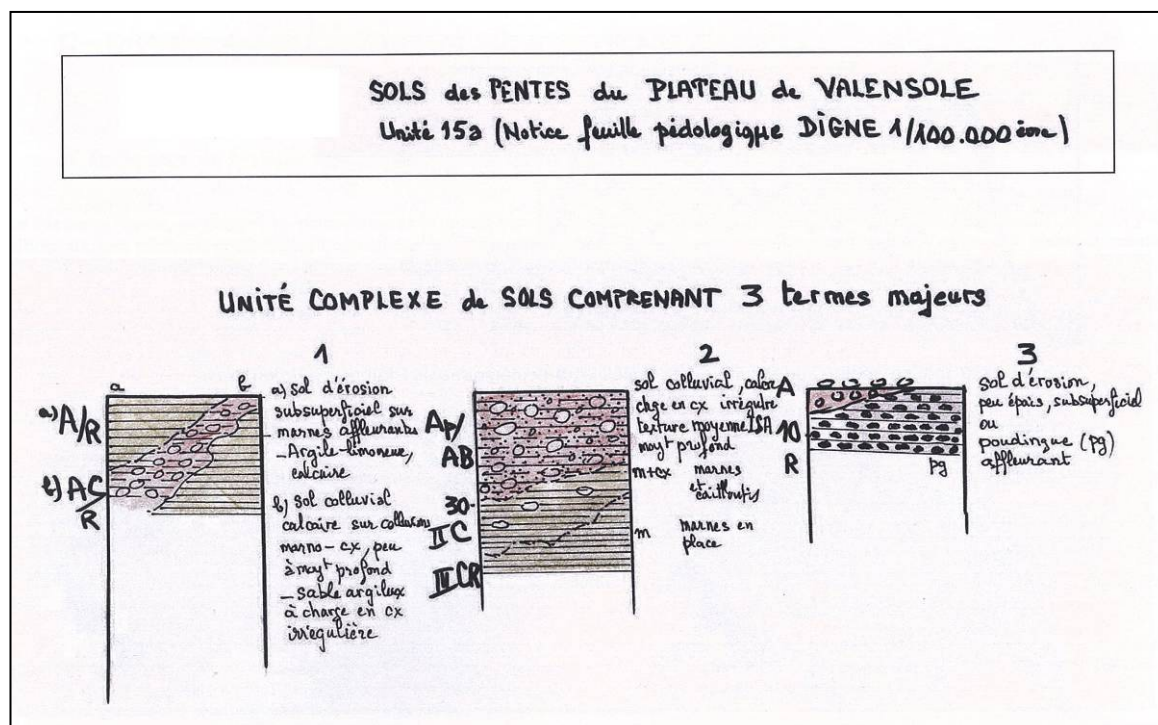 SOLS des PENTES du PLATEAU de VALENSOLE
Unité 15a (Notice feuille pédologique DIGNE 1/100.000ème)
UNITÉ COMPLEXE de SOLS COMPRENANT 3 termes majeurs
1
a
b
a) A/R
b) AC
R
a) sol d'érosion
subsuperficiel sur
marnes affleurantes
_ Argile-limoneux,
calcaire
b) sol colluvial
calcaire sur colluvions
marno-cx, peu
à mayt profond
_ sable argileux
à charge en cx
irrégulière
2
Ap/
AB
30-
II C
III CR
sol colluvial, calc
chge en cx irrégulre
texture moyenne LSA
mayt profond
m+cx
marnes
et
cailloutis
m
marnes en
place
3
A
10
R
pg
sol d'érosion,
peu épais, subsuperficiel
ou
poudingue (pg)
affleurant